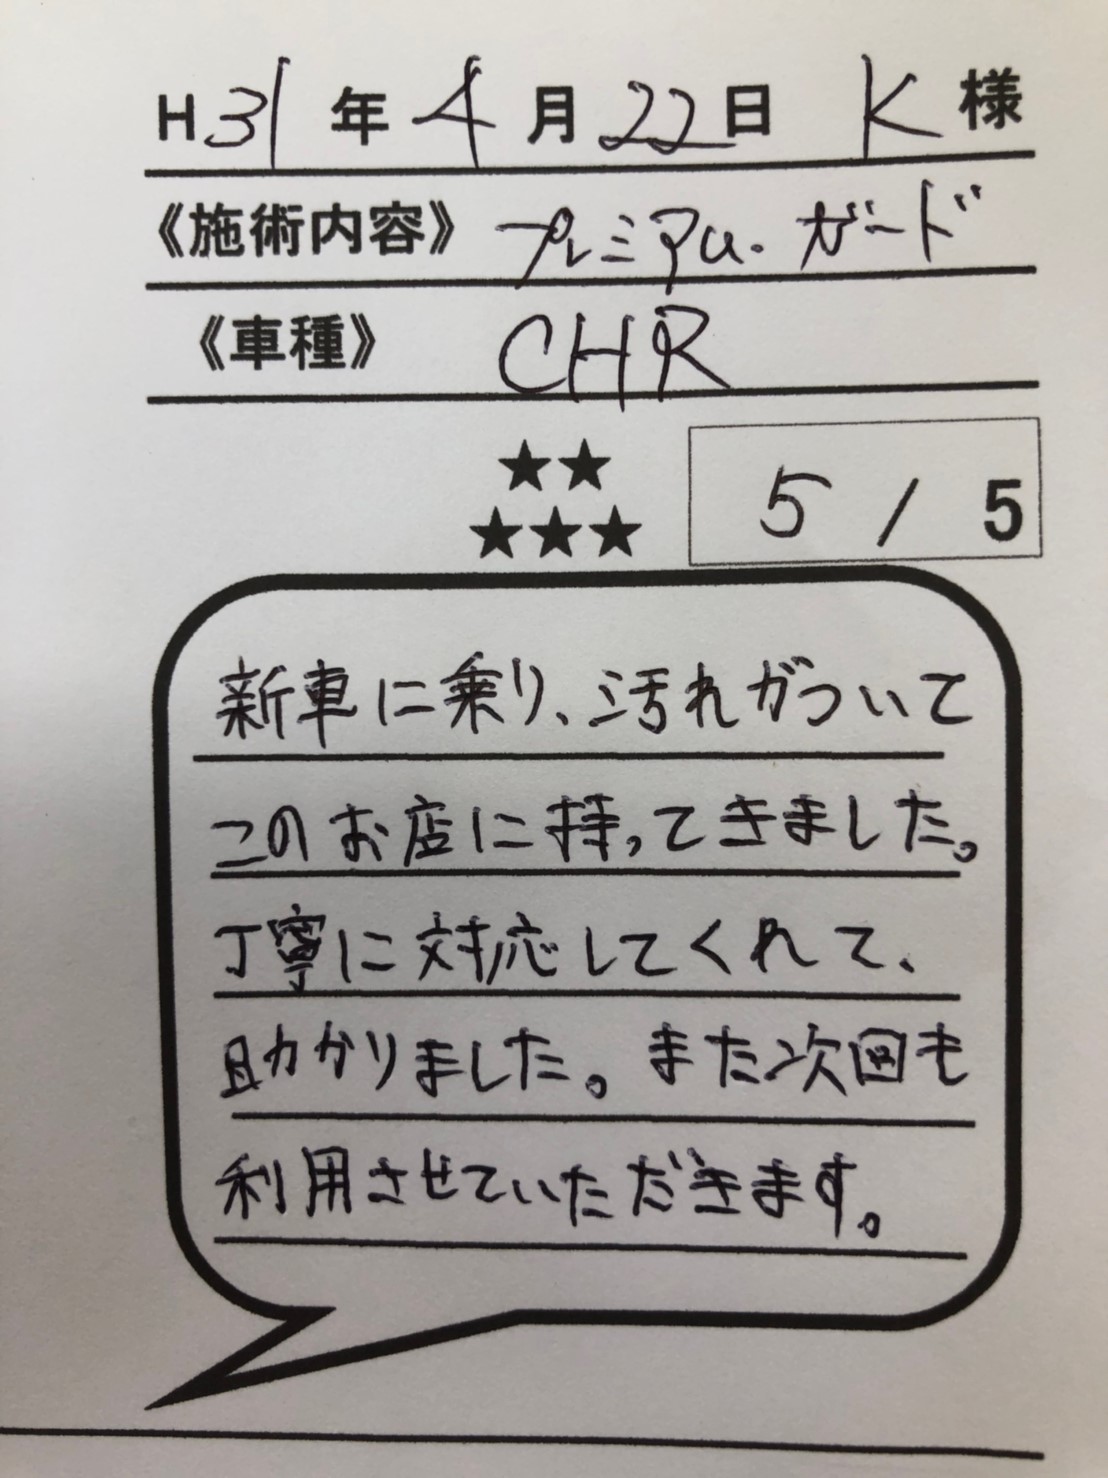 H31年4月22日 K様
《施術内容》 プレミアム・ガード
《車種》 CHR
★★
★★★ 5/5
新車に乗り、汚れがついて
このお店に持ってきました。
丁寧に対応してくれて、
助かりました。また次回も
利用させていただきます。